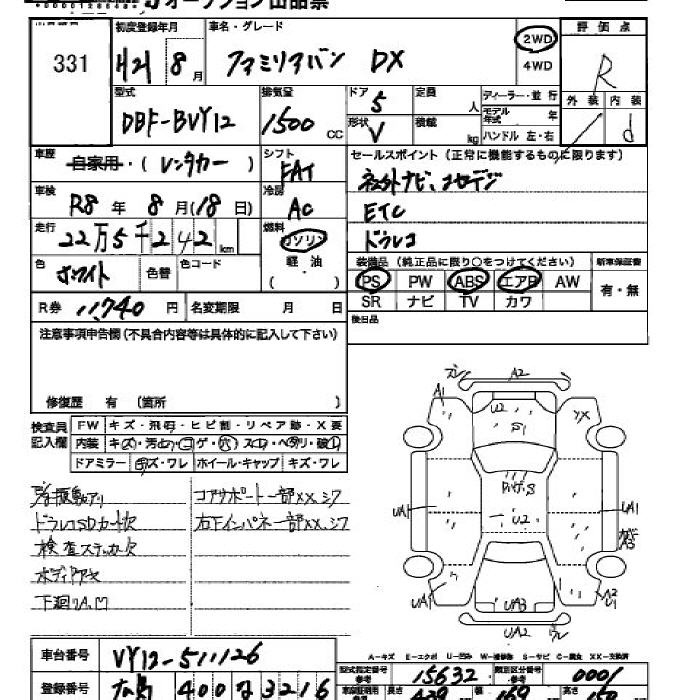 オークション出品票
331
初度登録年月
H21 8月
車名・グレード
ファミリアバン DX
2WD
4WD
評価点
R
外装 内装
d
型式
DBF-BVY12
排気量
1500 cc
ドア
5
形状
V
定員 人
積載 kg
ディーラー・並行
モデル年式 年
ハンドル 左・右
車歴
自家用・(レンタカー)
シフト
FAT
セールスポイント(正常に機能するものに限ります)
車検
R8年 8月(18日)
冷房
AC
ETC
ドラレコ
走行
22万5千242 km
燃料
ガソリン
軽油
( )
色
ホワイト
色替
色コード
装備品(純正品に限り○をつけてください)
PS PW ABS エアB AW
SR ナビ TV カワ
新車保証書
有・無
R券 11,740円
名変期限 月 日
後日品
注意事項申告欄(不具合内容等は具体的に記入して下さい)
修復歴 有 (箇所 )
検査員記入欄
FW キズ・飛石・ヒビ割・リペア跡・X要
内装 キズ・汚・コゲ・穴・スレ・ヘタリ・破レ
ドアミラー キズ・ワレ ホイール・キャップ キズ・ワレ
コアサポート一部XX、シワ
ドラレコSDカード欠
右下インパネ一部XX、シワ
検査ステッカー欠
下廻りA、凹
A1
A2
U2
XX
UA1
UA1
U2
A3
UA1
UA3
A2
U1
UA2
A-キズ E-エクボ U-凹み W-補修跡 S-サビ C-腐食 XX-交換済
車台番号
VY12-511126
型式指定番号 参考
15632
類別区分番号 参考
0001
登録番号
400 3216
長さ
幅
高さ